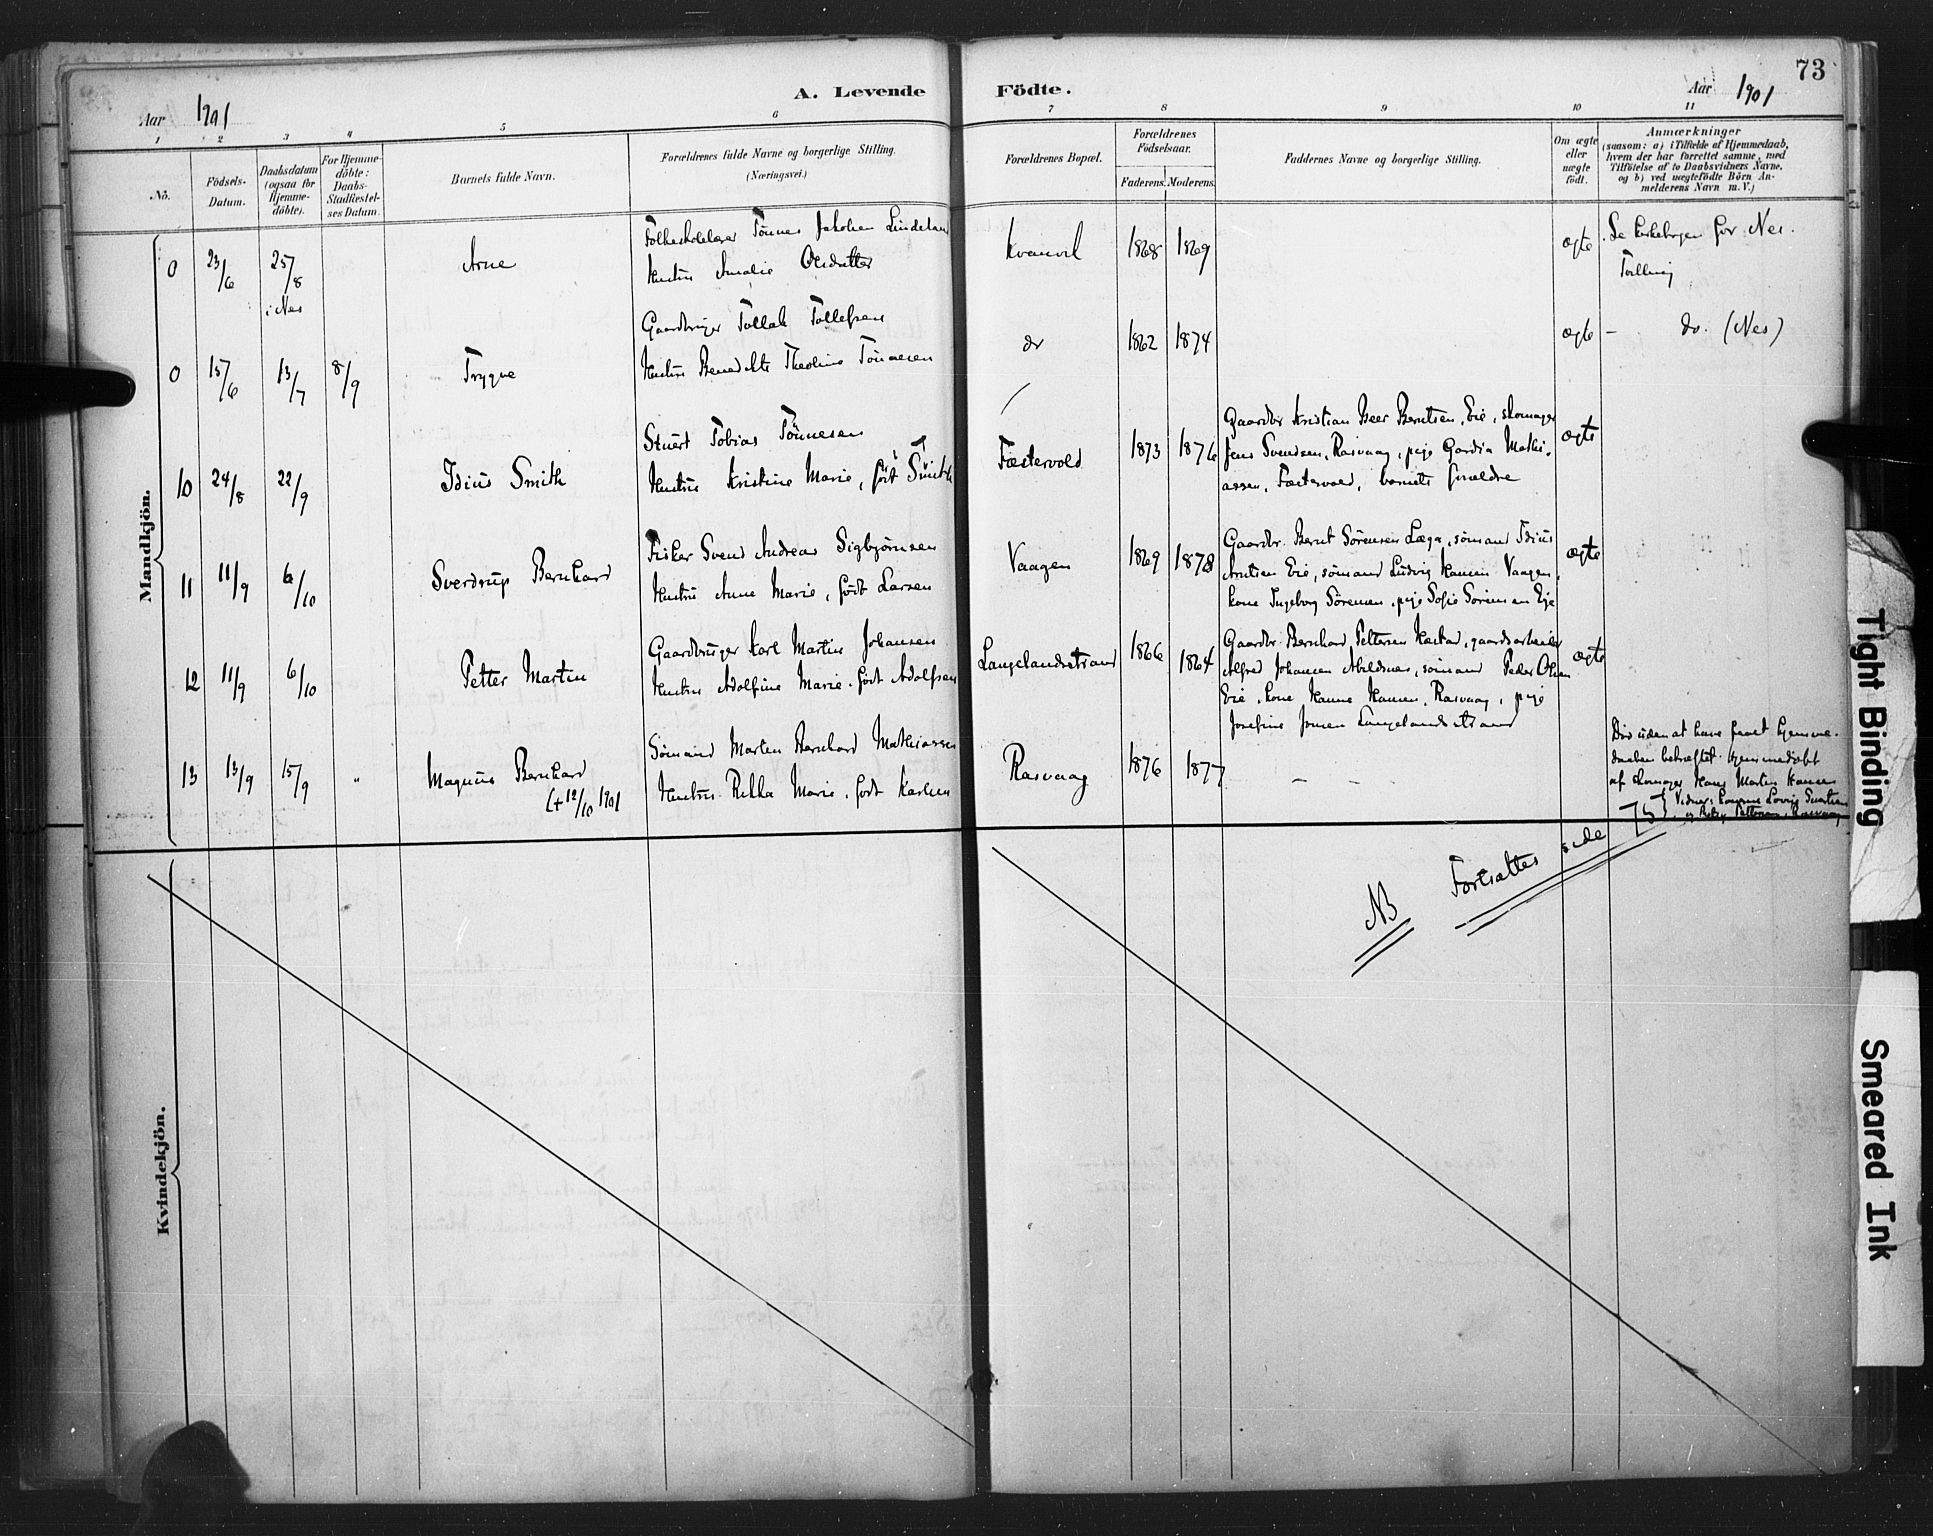 73
A. Levende Födte.
Aar 1901
Aar 1901
1 2 3 4 5 6 7 8 9 10 11
No.
Födsels-
Datum.
Daabsdatum
(ogsaa for
Hjemme-
döbte).
For Hjemme-
döbte:
Daabs-
Stadfæstel-
ses Datum.
Barnets fulde Navn.
Forældrenes fulde Navne og borgerlige Stilling.
(Næringsvei.)
Forældrenes Bopæl.
Forældrenes
Födselsaar.
Faderens. Moderens.
Faddernes Navne og borgerlige Stilling.
Om ægte
eller
uægte
födt.
Anmærkninger
(saasom: a) i Tilfælde af Hjemmedaab,
hvem der har forrettet samme, med
Tilföielse af to Daabsvidners Navne,
og b) ved uægtefödte Börn An-
melderens Navn m. V.)
Mandkjön.
0 23/6 25/8 i Nes
Arne
Folkeskolelærer Tönnes Jakobsen Lindeland
Hustru Amalie Olsdatter
Kvanvik 1868 1869
ægte
Se kirkebogen for Nes.
0 15/6 13/7 8/9
Trygve
Gaardbruger Tollak Tollefsen
Hustru Benedikte Theoline Tönnesen
do 1862 1874
ægte
– do. (Nes)
10 24/8 22/9
Idius Smith
Stuert Tobias Tönnesen
Hustru Kristine Marie, født Smith
Fæstervold 1873 1876
Gaardbr Kristian Beer Berntsen, Eie, skomager
Jens Svendsen, Rasvaag, pige Gardia Mathi-
assen, Fæstervold, barnets forældre
ægte
11 11/9 6/10
Sverdrup Bernhard
Fisker Svend Andreas Sigbjørnsen
Hustru Anne Marie, født Larsen
Vaagen 1869 1878
Gaardbr. Bernt Sörensen Læga, sömand Idius
Arntsen Eie, sömand Ludvig Hansen Vaagen,
kone Ingeborg Sörensen, pige Sofie Sörensen Eie
ægte
12 11/9 6/10
Petter Martin
Gaardbruger Karl Martin Johansen
Hustru Adolfine Marie, født Adolfsen
Langelandsstrand 1866 1864
Gaardbr. Bernhard Pettersen Hastad, gaardsarbeider
Alfred Johansen Abeldsnes, sömand Peder Olsen
Eie, kone Hanne Hansen, Rasvaag, pige
Josefine Jensen Langelandsstrand
ægte
13 13/9 15/9 "
Magnus Bernhard
(+ 12/10 1901
Sömand Marten Bernhard Mathiassen
Hustru Rikka Marie, født Karlsen
Rasvaag 1876 1877
– – –
Död uden at have faaet hjemme-
daaben bekræftet. Hjemmedöbt
af skomager Hans Martin Hansen
NB Fortsættes side 75
Kvindekjön.
Tight Binding
Smeared Ink